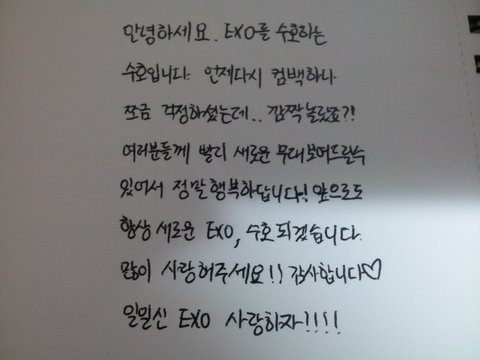 안녕하세요. EXO를 수호하는
수호입니다. 언제다시 컴백하나
쪼금 걱정하셨는데.. 깜짝놀랐죠?!
여러분들께 빨리 새로운 무대보여드릴수
있어서 정말행복하답니다! 앞으로도
항상새로운 EXO, 수호되겠습니다.
많이 사랑해주세요!! 감사합니다♡
일밀신 EXO 사랑하자!!!!